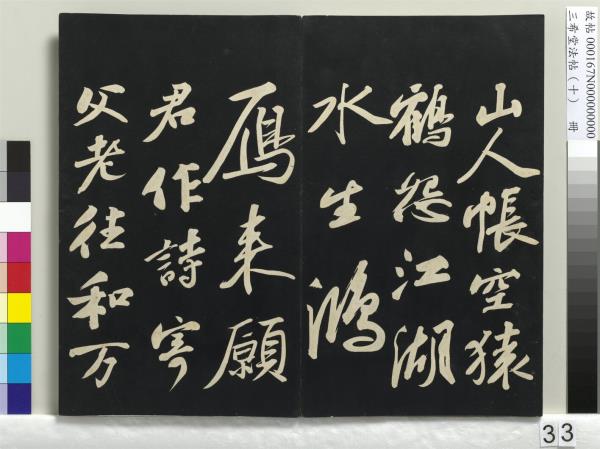 山人帳空猿
鶴怨江湖
水生鴻
鴈来願
君作詩寄
父老往和万
故帖 000167N000000000
三希堂法帖(十) 冊
33